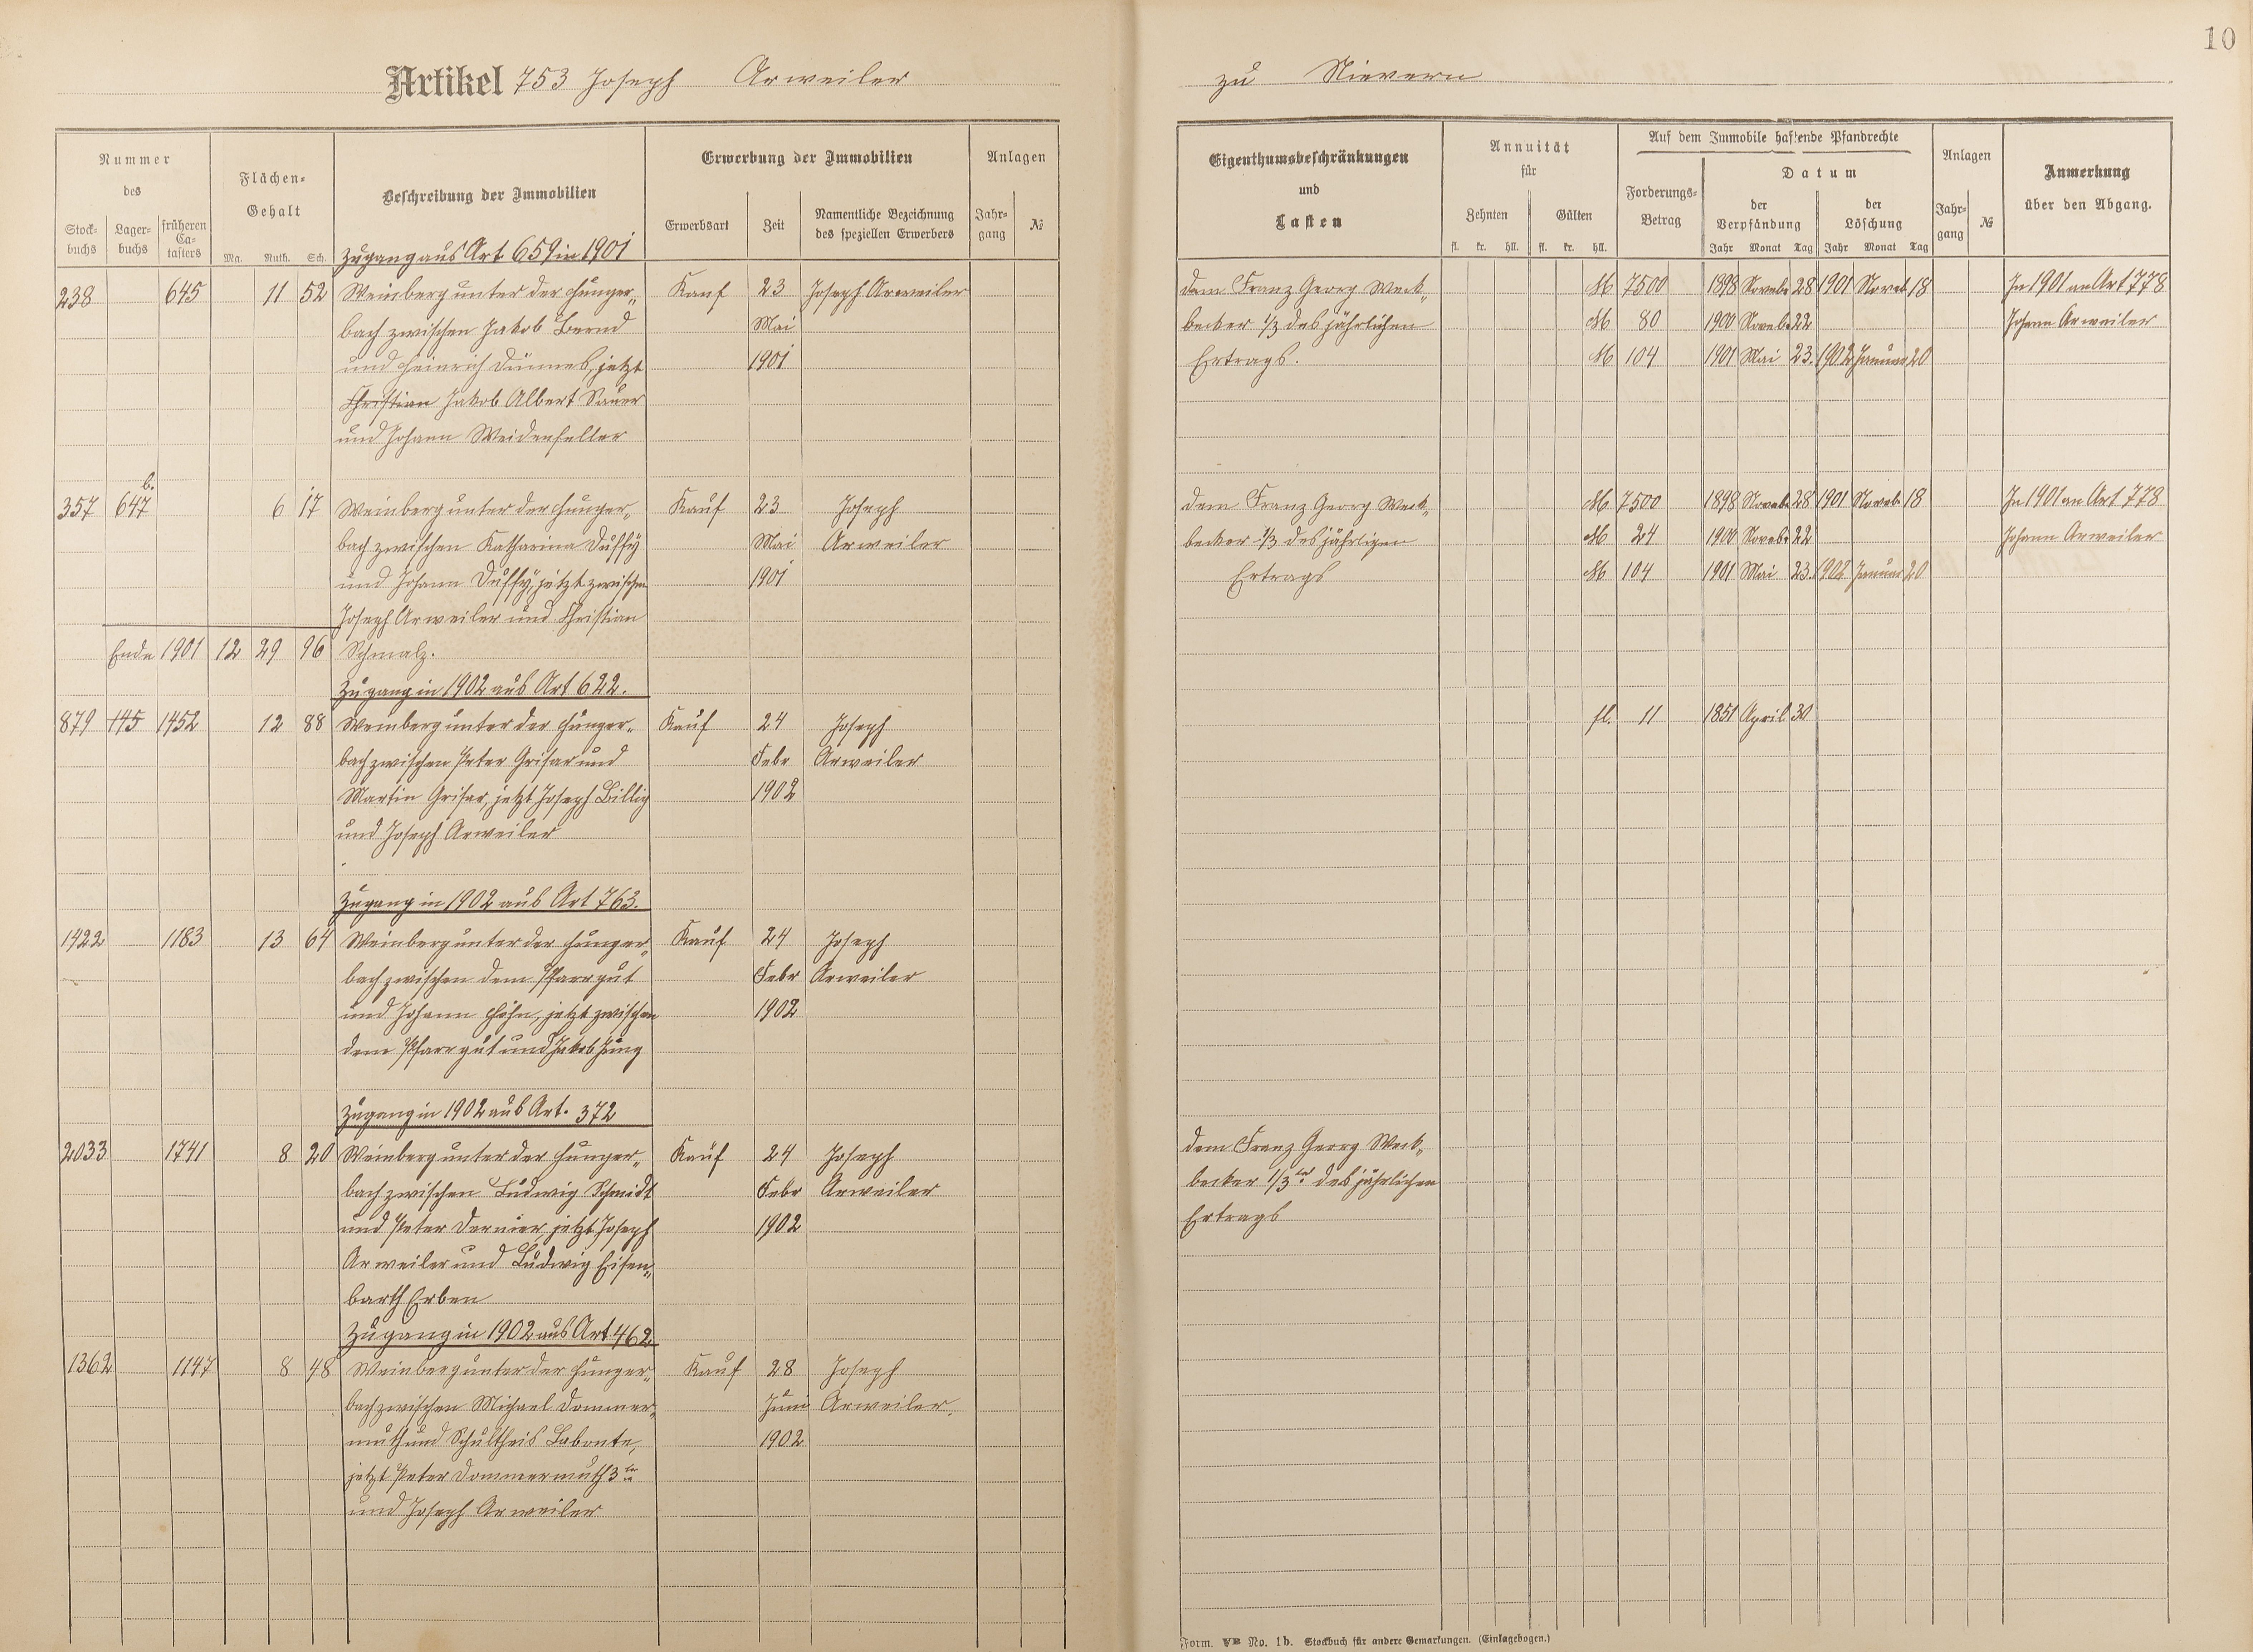 10
Artikel 753 Joseph Arweiler zu Nievern
Nummer
des
Stock-
buchs
Lager-
buchs
früheren
Ca-
tasters
Flächen-
Gehalt
Mg. Ruth. Sch.
Beschreibung der Immobilien
Erwerbung der Immobilien
Erwerbsart
Zeit
Namentliche Bezeichnung
des speziellen Erwerbers
Anlagen
Jahr-
gang
№
Eigenthumsbeschränkungen
und
Lasten
Annuität
für
Zehnten
Gülten
fl. kr. hll. fl. kr. hll.
Auf dem Immobile haftende Pfandrechte
Forderungs-
Betrag
Datum
der
Verpfändung
der
Löschung
Jahr Monat Tag Jahr Monat Tag
Anlagen
Jahr-
gang
№
Anmerkung
über den Abgang.
Zugang aus Art 659 in 1901
238 645 11 52 Weinberg unter der Hunger„ Kauf 23 Joseph Arweiler dem Franz Georg Weck„ M 7500 1898 Novebr 28 1901 Noveb 18 In 1901 an Art 778
bach zwischen Jakob Bernd Mai becker 1/3 des jährlichen M 80 1900 Novebr 22 Johann Arweiler
und Heinrich Dünnes, jetzt 1901 Ertrags. M 104 1901 Mai 23. 1902 Januar 20
Christian Jakob Albert Sauer
und Johann Weidenfeller
b.
357 647 6 17 Weinberg unter der Hunger„ Kauf 23 Joseph dem Franz Georg Weck„ M 7500 1898 Novebr 28 1901 Novebr 18 In 1901 an Art 778
bach zwischen Katharina Duffy Mai Arweiler becker 1/3 des jährligen M 24 1900 Novebr 22 Johann Arweiler
und Johann Duffy, jetzt zwischen 1901 Ertrags M 104 1901 Mai 23. 1902 Januar 20
Joseph Arweiler und Christian
Ende 1901 12 29 96 Schmalz.
Zugang in 1902 aus Art 622.
879 145 1452 12 88 Weinberg unter der Hunger„ Kauf 24 Joseph fl. 11 1851 April 30
bach zwischen Peter Grisar und Febr Arweiler
Martin Grisar, jetzt Joseph Billig 1902
und Joseph Arweiler
Zugang in 1902 aus Art 763.
1422 1183 13 64 Weinberg unter der Hunger„ Kauf 24 Joseph
bach zwischen dem Pfarrgut Febr Arweiler
und Johann Höhn, jetzt zwischen 1902
dem Pfarrgut und Jakob Jung
Zugang in 1902 aus Art. 372
2033 1741 8 20 Weinberg unter der Hunger„ Kauf 24 Joseph dem Franz Georg Weck„
bach zwischen Ludwig Schmidt Febr Arweiler becker 1/3tel des jährlichen
und Peter Dernier, jetzt Joseph 1902 Ertrags
Arweiler und Ludwig Eisen„
barth Erben
Zugang in 1902 aus Art 462
1362 1147 8 48 Weinberg unter der Hunger„ Kauf 28 Joseph
bach zwischen Michael Dommer„ Juni Arweiler.
muth und Schultheis Labonte, 1902
jetzt Peter Dommermuth 3te
und Joseph Arweiler
Form. VB No. 1b. Stockbuch für andere Gemarkungen. (Einlagebogen.)